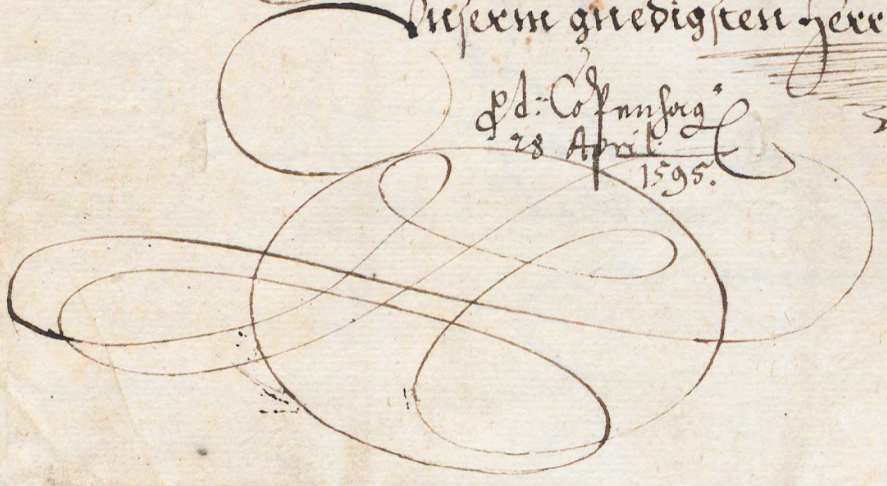 Vnserm gnedigsten Herr
pd: Copenhag:
28 April
1595.